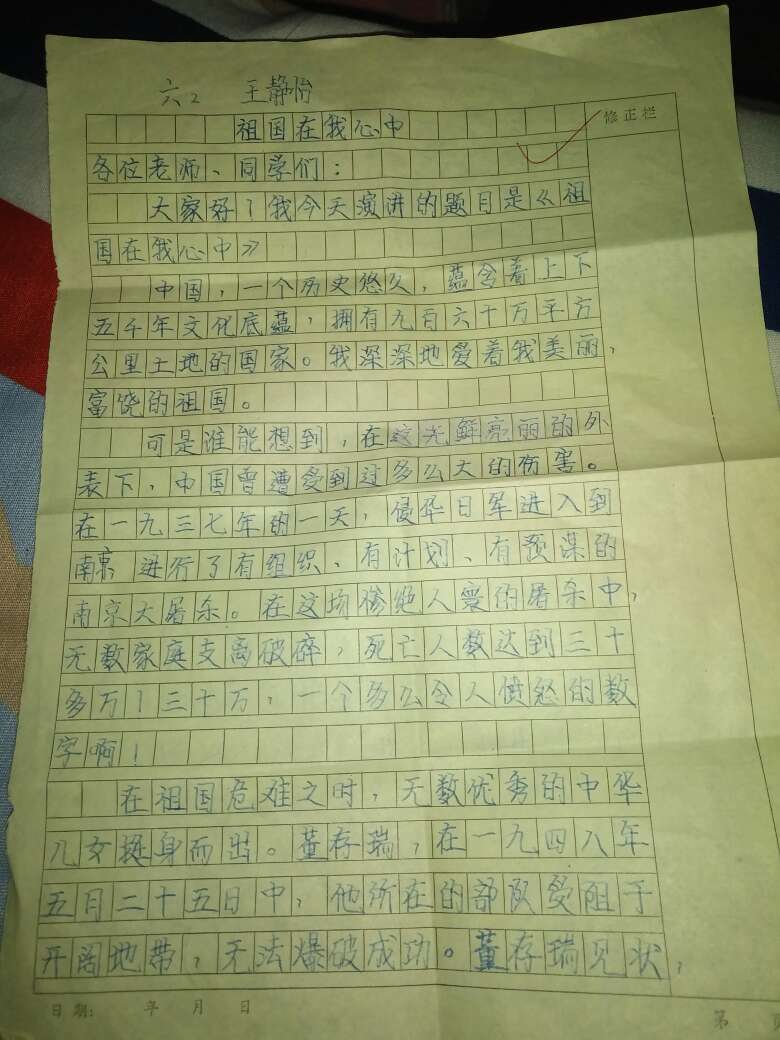 六2 王静怡
修正栏
祖国在我心中
各位老师、同学们：
大家好！我今天演讲的题目是《祖
国在我心中》
中国，一个历史悠久，蕴含着上下
五千年文化底蕴，拥有九百六十万平方
公里土地的国家。我深深地爱着我美丽，
富饶的祖国。
可是谁能想到，在这光鲜亮丽的外
表下，中国曾遭受到过多么大的伤害。
在一九三七年的一天，侵华日军进入到
南京 进行了有组织、有计划、有预谋的
南京大屠杀。在这场惨绝人寰的屠杀中，
无数家庭支离破碎，死亡人数达到三十
多万！三十万，一个多么令人愤怒的数
字啊！
在祖国危难之时，无数优秀的中华
儿女挺身而出。董存瑞，在一九四八年
五月二十五日中，他所在的部队受阻于
开阔地带，无法爆破成功。董存瑞见状，
日期： 年 月 日
第 页